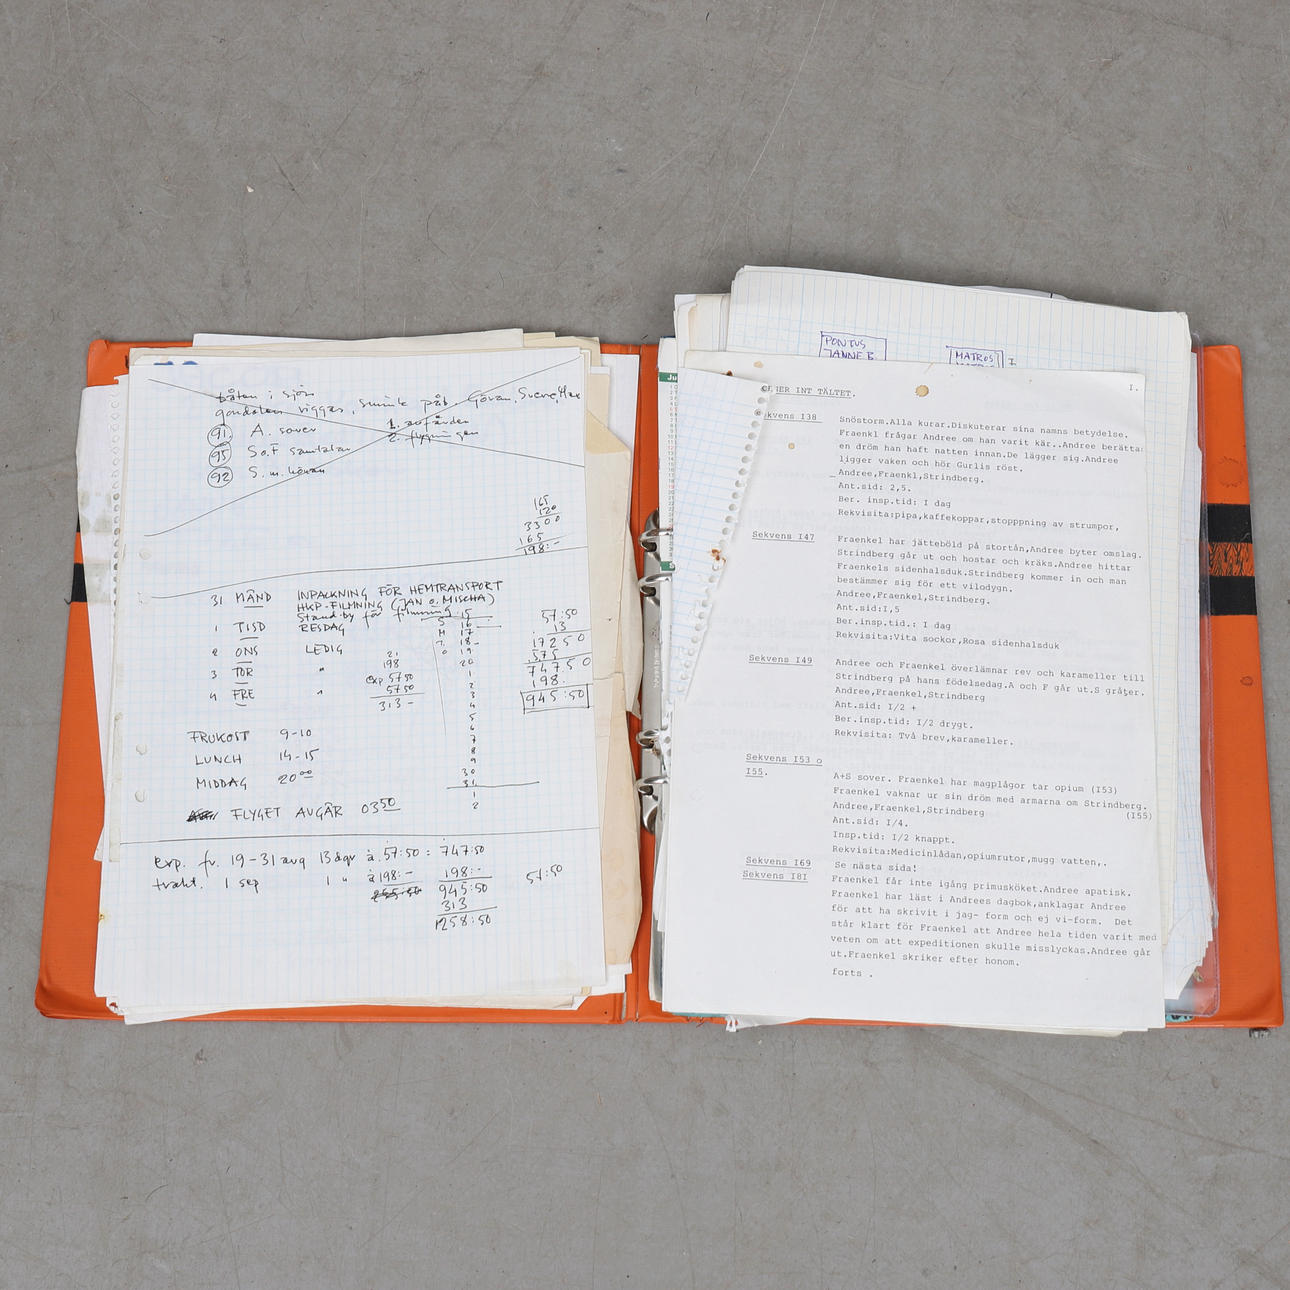 båten i sjön
gondolen riggas, Göran, Sverre, Max
91. A. sover 1.
2. flygningen
95 S o. F samtalar
92 S. m. kåvan
165
120
3300
165
198:-
31 MÅND INPACKNING FÖR HEMTRANSPORT
HKP-FILMNING (JAN o. MISCHA)
Stand by för filmning.
1 TISD RESDAG
2 ONS LEDIG
3 TOR "
4 FRE "
21.
198
exp 57 50
57 50
313 -
15
S 16
M 17
T. 18
O 19
20
1
2
3
4
5
6
7
8
9
30
31
1
2
57:50
13
172 50
575
747.50
198.
945:50
FRUKOST 9-10
LUNCH 14-15
MIDDAG 20 00
FLYGET AVGÅR 03 50
exp. fr. 19-31 aug 13 dgr à. 57:50 = 747:50
trakt. 1 sep 1 " à 198:- 198:-
945:50
313
1258:50
57:50
PONTUS
JANNE B
MATROS
Ju
INT TÄLTET. I.
kvens I38 Snöstorm.Alla kurar.Diskuterar sina namns betydelse.
Fraenkl frågar Andree om han varit kär..Andree berätta
en dröm han haft natten innan.De lägger sig.Andree
ligger vaken och hör Gurlis röst.
Andree,Fraenkl,Strindberg.
Ant.sid: 2,5.
Ber. insp.tid: I dag
Rekvisita:pipa,kaffekoppar,stopppning av strumpor,
Sekvens I47 Fraenkel har jätteböld på stortån,Andree byter omslag.
Strindberg går ut och hostar och kräks.Andree hittar
Fraenkels sidenhalsduk.Strindberg kommer in och man
bestämmer sig för ett vilodygn.
Andree,Fraenkel,Strindberg.
Ant.sid:I,5
Ber.insp.tid.: I dag
Rekvisita:Vita sockor,Rosa sidenhalsduk
Sekvens I49 Andree och Fraenkel överlämnar rev och karameller till
Strindberg på hans födelsedag.A och F går ut.S gråter.
Andree,Fraenkel,Strindberg
Ant.sid: I/2 +
Ber.insp.tid: I/2 drygt.
Rekvisita: Två brev,karameller.
Sekvens I53 o
I55. A+S sover. Fraenkel har magplågor tar opium (I53)
Fraenkel vaknar ur sin dröm med armarna om Strindberg.
Andree,Fraenkel,Strindberg (I55)
Ant.sid: I/4.
Insp.tid: I/2 knappt.
Rekvisita:Medicinlådan,opiumrutor,mugg vatten,.
Sekvens I69 Se nästa sida!
Sekvens I8I Fraenkel får inte igång primusköket.Andree apatisk.
Fraenkel har läst i Andrees dagbok,anklagar Andree
för att ha skrivit i jag- form och ej vi-form. Det
står klart för Fraenkel att Andree hela tiden varit med
veten om att expeditionen skulle misslyckas.Andree går
ut.Fraenkel skriker efter honom.
forts .